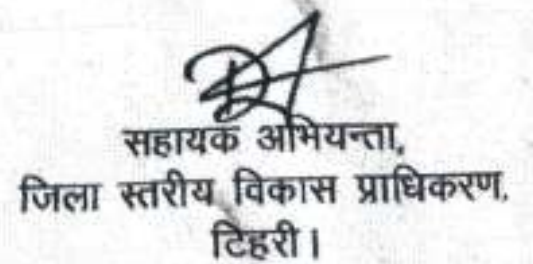 सहायक अभियन्ता,
जिला स्तरीय विकास प्राधिकरण,
टिहरी।